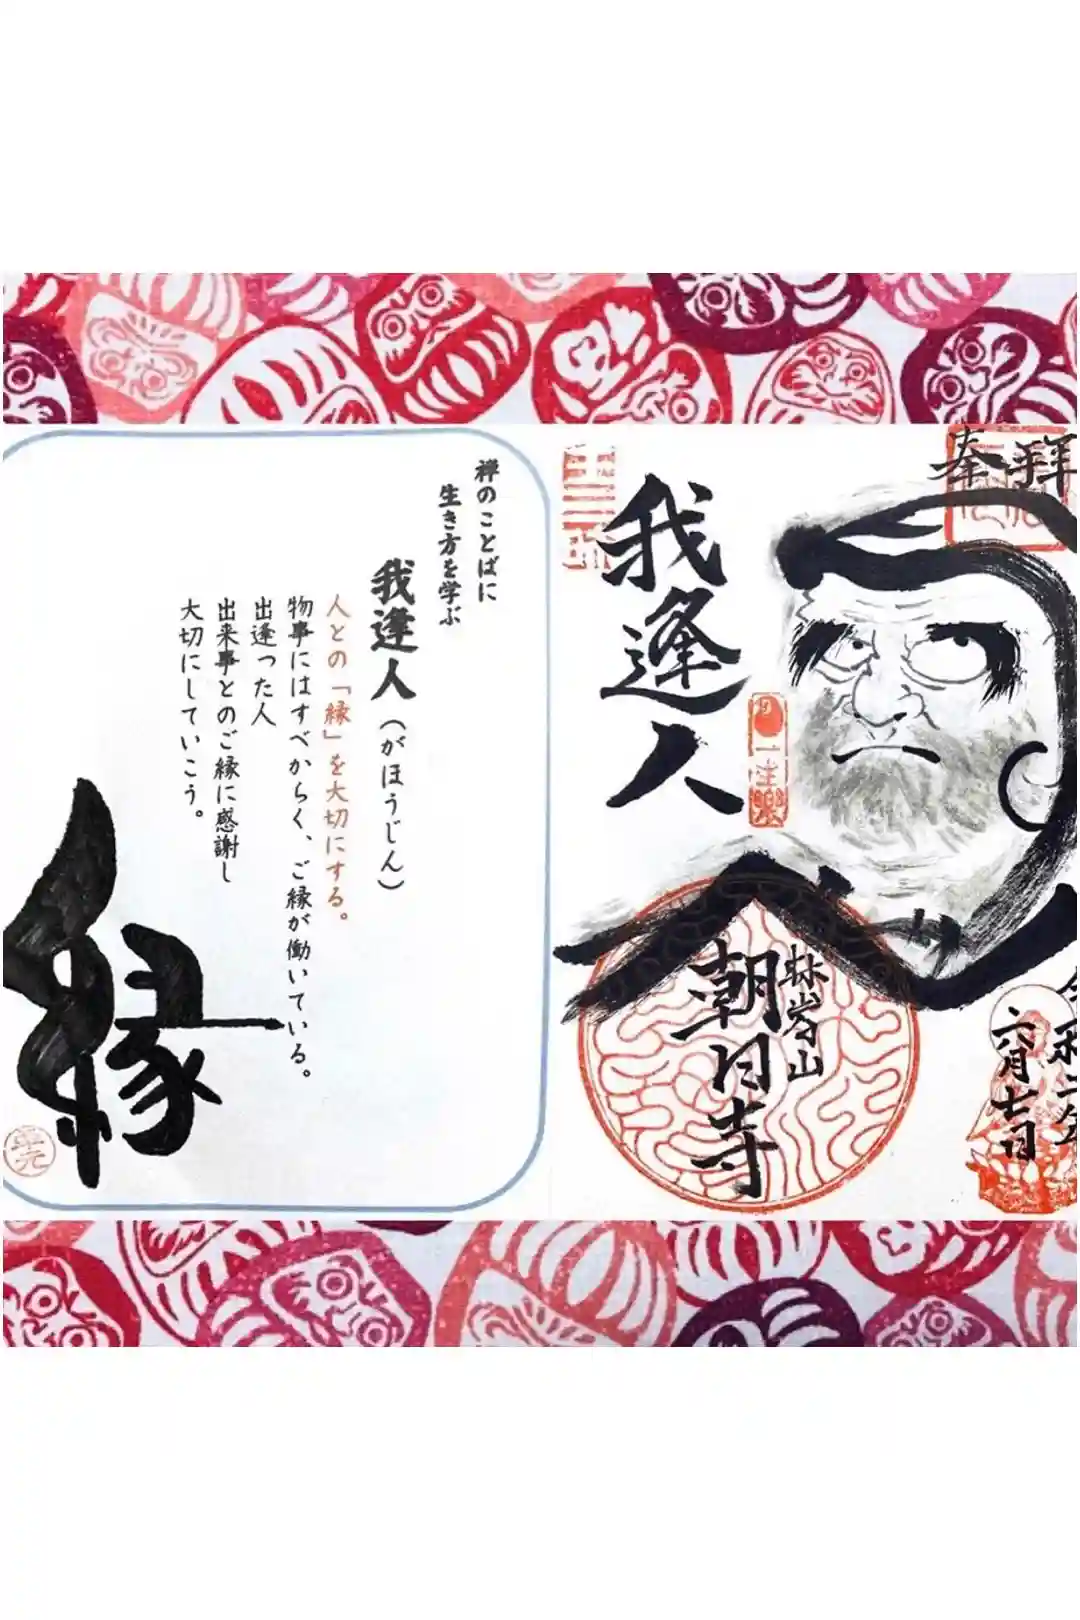 奉拝
我逢人
林岑山
朝日寺
六月七日
禅のことばに
生き方を学ぶ
我逢人(がほうじん)
人との「縁」を大切にする。
物事にはすべからく、ご縁が働いている。
出逢った人
出来事とのご縁に感謝し
大切にしていこう。
縁